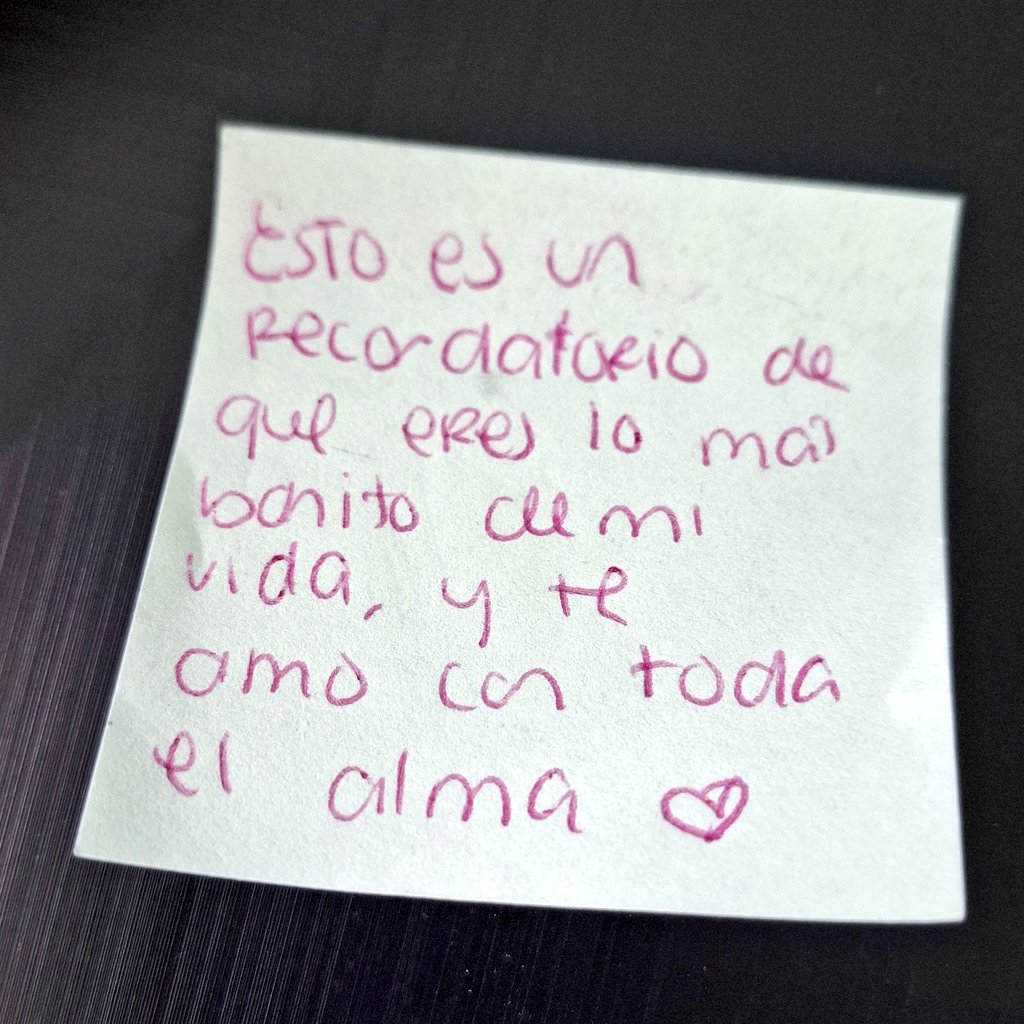 Esto es un
recordatorio de
que eres lo más
bonito de mi
vida, y te
amo con toda
el alma